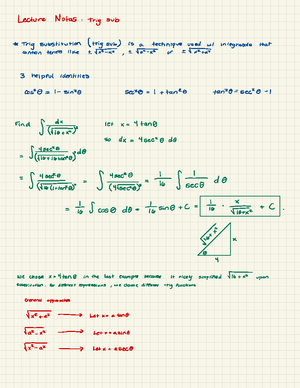 Lecture Notes: Trig Sub
* Trig substitution (trig sub) is a technique used w/ integrands that
contain terms like ±√(x²-a²), ±√(a²-x²) or ±√(a²+x²)
3 helpful identities
cos²θ = 1 - sin²θ sec²θ = 1 + tan²θ tan²θ = sec²θ - 1
Find ∫ dx/(√(16+x²))³ let x = 4tanθ
so dx = 4sec²θ dθ
= ∫ 4sec²θ/(√(16+16tan²θ))³ dθ
= ∫ 4sec²θ/(√(16(1+tan²θ)))³ = ∫ 4sec²θ/(4secθ)³ = 1/16 ∫ 1/secθ dθ
= 1/16 ∫ cosθ dθ = 1/16 sinθ + C = 1/16 · x/√(16+x²) + C.
√(16+x²) x
θ
4
We chose x = 4tanθ in the last example because it nicely simplified √(16+x²) upon
substitution. For different expressions, we choose different trig functions
General approaches
√(x²+a²) → Let x = a tanθ
√(a²-x²) → Let x = a sinθ
√(x²-a²) → Let x = a secθ